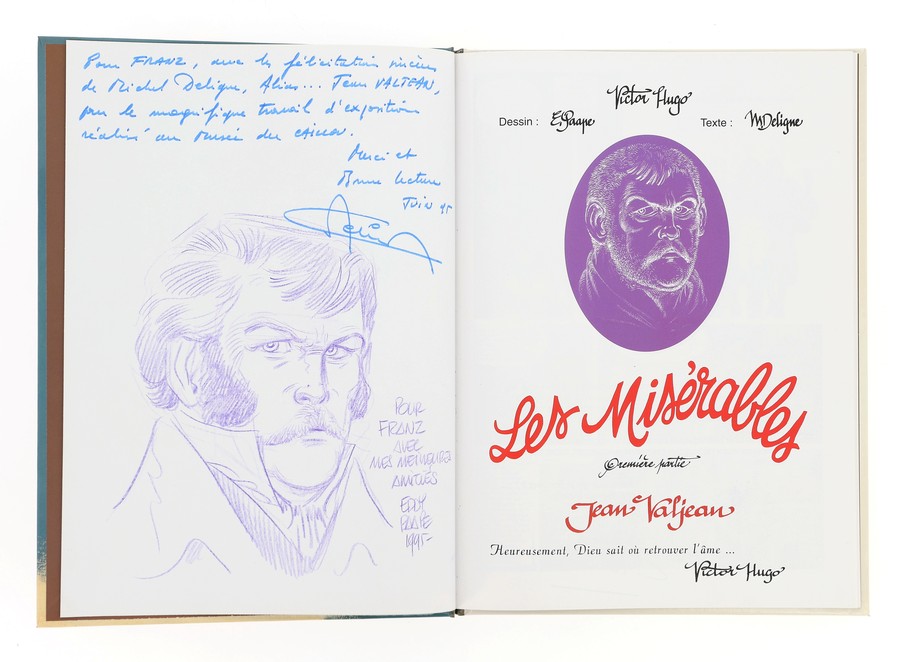 Pour FRANZ, avec les félicitations sincères
de Michel Deligne, Alias... Jean VALJEAN,
pour le magnifique travail d'exposition
réalisé au Musée du
Merci et
Bonne lecture
Juin 95
POUR
FRANZ
AVEC
MES MEILLEURES
AMITIÉS
EDDY
PAAPE
1995-
Victor Hugo
Dessin : E.Paape Texte : M.Deligne
Les Misérables
Première partie
Jean Valjean
Heureusement, Dieu sait où retrouver l'âme ...
Victor Hugo